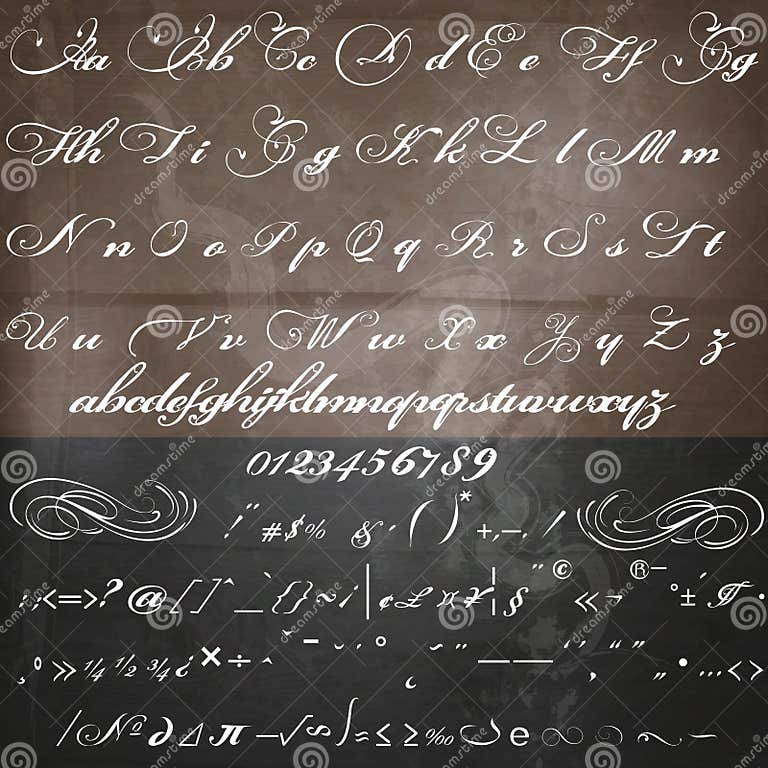 Aa Bb Cc D d E e Ff Gg
Hh I i G g K k L l M m
N n O o P p Q q R r S s T t
U u V v W w X x Y y Z z
abcdefghijklmnopqrstuvwxyz
0123456789
!" #$% &' ( ) * +,-. /
:;<=>? @ [ \ ] ^ _ ` { } ~ ¡ | ¢ £ ¤ ¥ ¦ § ¨ © « ¬ ® ¯ ° ± ´ ¶ ·
¸ º » ¼ ½ ¾ ¿ × ÷ ˆ ˇ ˉ ˘ ˙ ˚ ˛ ˜ ˝ – — ‘ ’ ‚ “ ” „ • … ‹ ›
⁄ № ∂ ∆ π − √ ∞ ∫ ≈ ≤ ≥ ‰ e
dreamstime